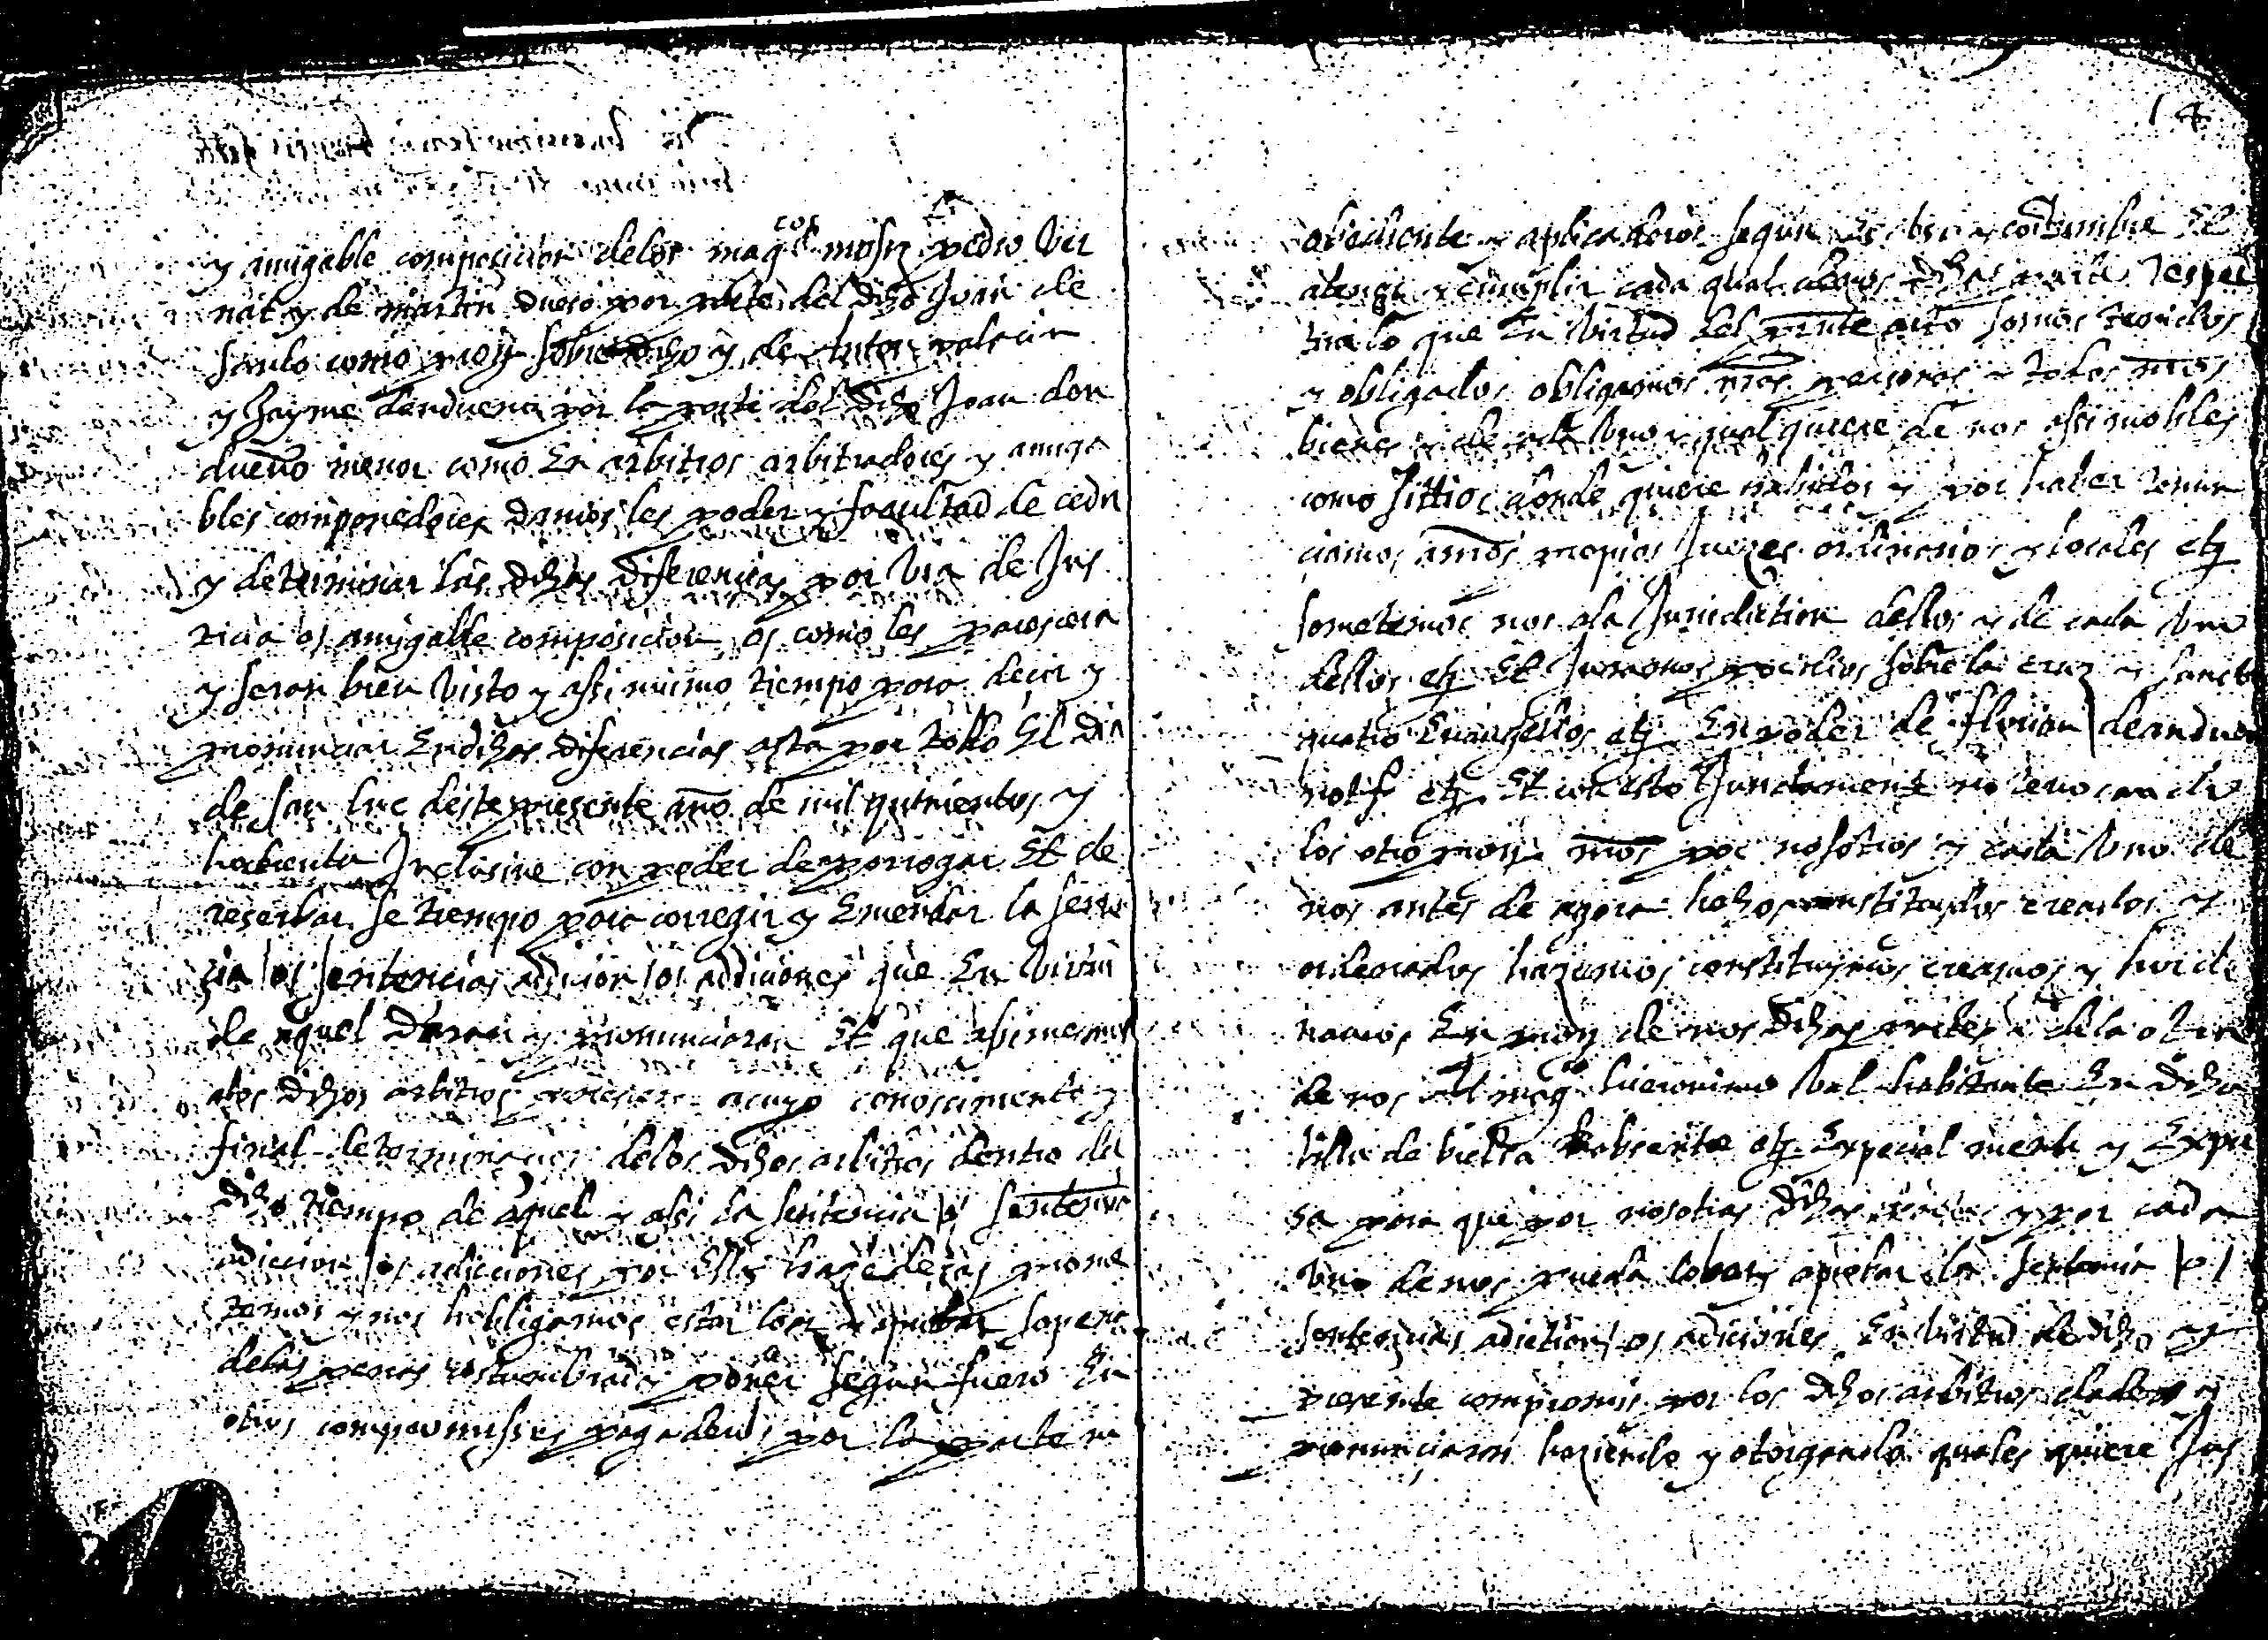 y amigable composicion delos mag.cos mosen pedro Ver
nat y de martin duero por parte del dho Juan de
Santo como pron sobredho y de Anton
y Jayme danduena por la parte del dho Joan don
dueño menor como En arbitros arbitradores y amiga
bles componedores damos les poder y facultad de
y determinar las dhas diferencias por via de Jus
ticia o amigable composicion o como les parescera
y seran bien visto y assi mismo tiempo para decir y
pronunciar En dhas diferencias asta por todo El dia
de san luc deste presente año de mil quinientos y
hochenta Inclusive con poder de porrogar Et de
reserbar se tiempo para corregir y Emendar la senten
cia /o/ sentencias adicion /o/ addiciones que En Virtu
de aquel daran y pronunciaran Et que assimesmo
alos dhos arbitros acuyo conoscimento y
final determinacion delos dhos arbitros dentro del
dho tiempo de aquel y assi la sentencia /o/ sentencia
adicion /o/ adiciones por Ellos hazederas prome
temos y nos hobligamos estar loar y aprobar sopena
delas penas costumbradas poner segun fuero En
otros compromisses pagaderas por la parte in
14
obediente y aplicaderos segun Es uso y costumbre Et
atener y cumplir cada qual de nos dhas partes respec
tiva lo que En Virtud del prnte acto somos tenidos
y obligados obligamos nras personas y todos nros
bienes y de cada Uno y qual quiere de nos assi mobles
como sittios donde quiere habidos y por haber renun
ciamos anros propios Juezes ordinarios y locales etz
sometemos nos ala Jurisdiction dellos y de cada Uno
dellos etz Et Juramos por dios sobre la cruz y sanctos
quatro Evangelios etz En poder de florian deanduen
notº etz Et con esto Junctamente no revocando
los otros prones nros por nosotros y cada Uno de
nos antes de agora hechos constituydos creados y
ordenados hazemos constituymos creamos y hordi
namos En pron de nos dhas partes y dela otra
de nos Al mag.co hieronimo Val habitante En dha
Villa de bielsa absente etz Especial mente y Expre
sa para que por nosotras dhas partes y por cada
Uno denos pueda loar y aprobar la sentencia /o/
sentencias adiction /o/ adiciones En Virtud de dho y
presente compromis por los dhos arbitros dadera y
pronunciaran haziendo y otorgando quales quiere Ins